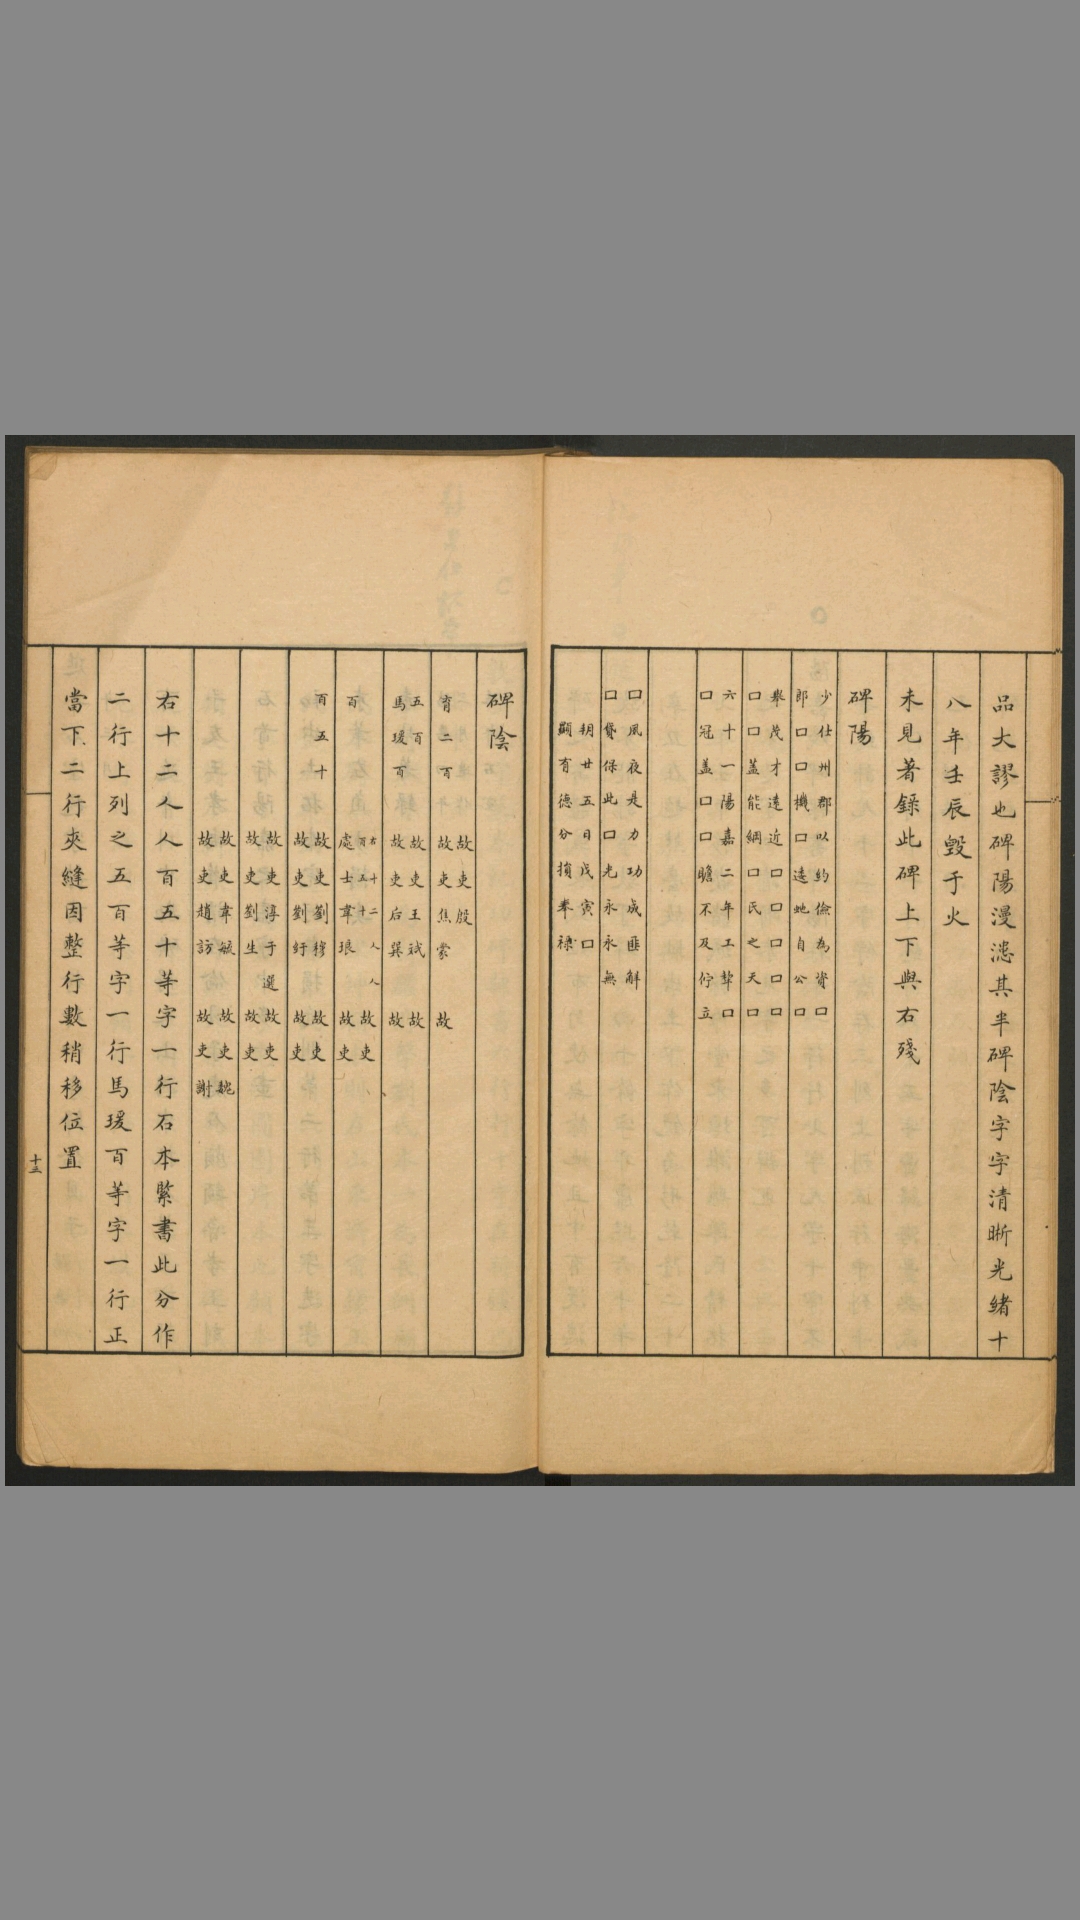 品大謬也碑陽漫漶其半碑陰字字清晰光緒十
八年壬辰毀于火
未見著錄此碑上下與右殘
碑陽
少仕州郡以約儉為資口
郎口口機口遠虵自公口
舉茂才遠近口口口口口
口口蓋能綱口氏之天口
六十一陽嘉二年工犂口
口冠蓋口口瞻不及佇立
口風夜是力功成匪解
口貸保此口光永永無
朔廿五日戊寅口
顯有德分損奉祿
碑陰
故吏殷
育二百 故吏焦蒙 故
五百 故吏王斌 故
馬瑗百 故吏后巽 故
右十二人人百五十 故吏
百 處士韋琅 故吏
百五十 故吏劉穆 故吏
故吏劉紆 故吏
故吏淳于選 故吏
故吏劉生 故吏
故吏韋毓 故吏魏
故吏趙訪 故吏謝
右十二人人百五十等字一行石本緊書此分作
二行上列之五百等字一行馬瑗百等字一行正
當下二行夾縫因整行數稍移位置
十三